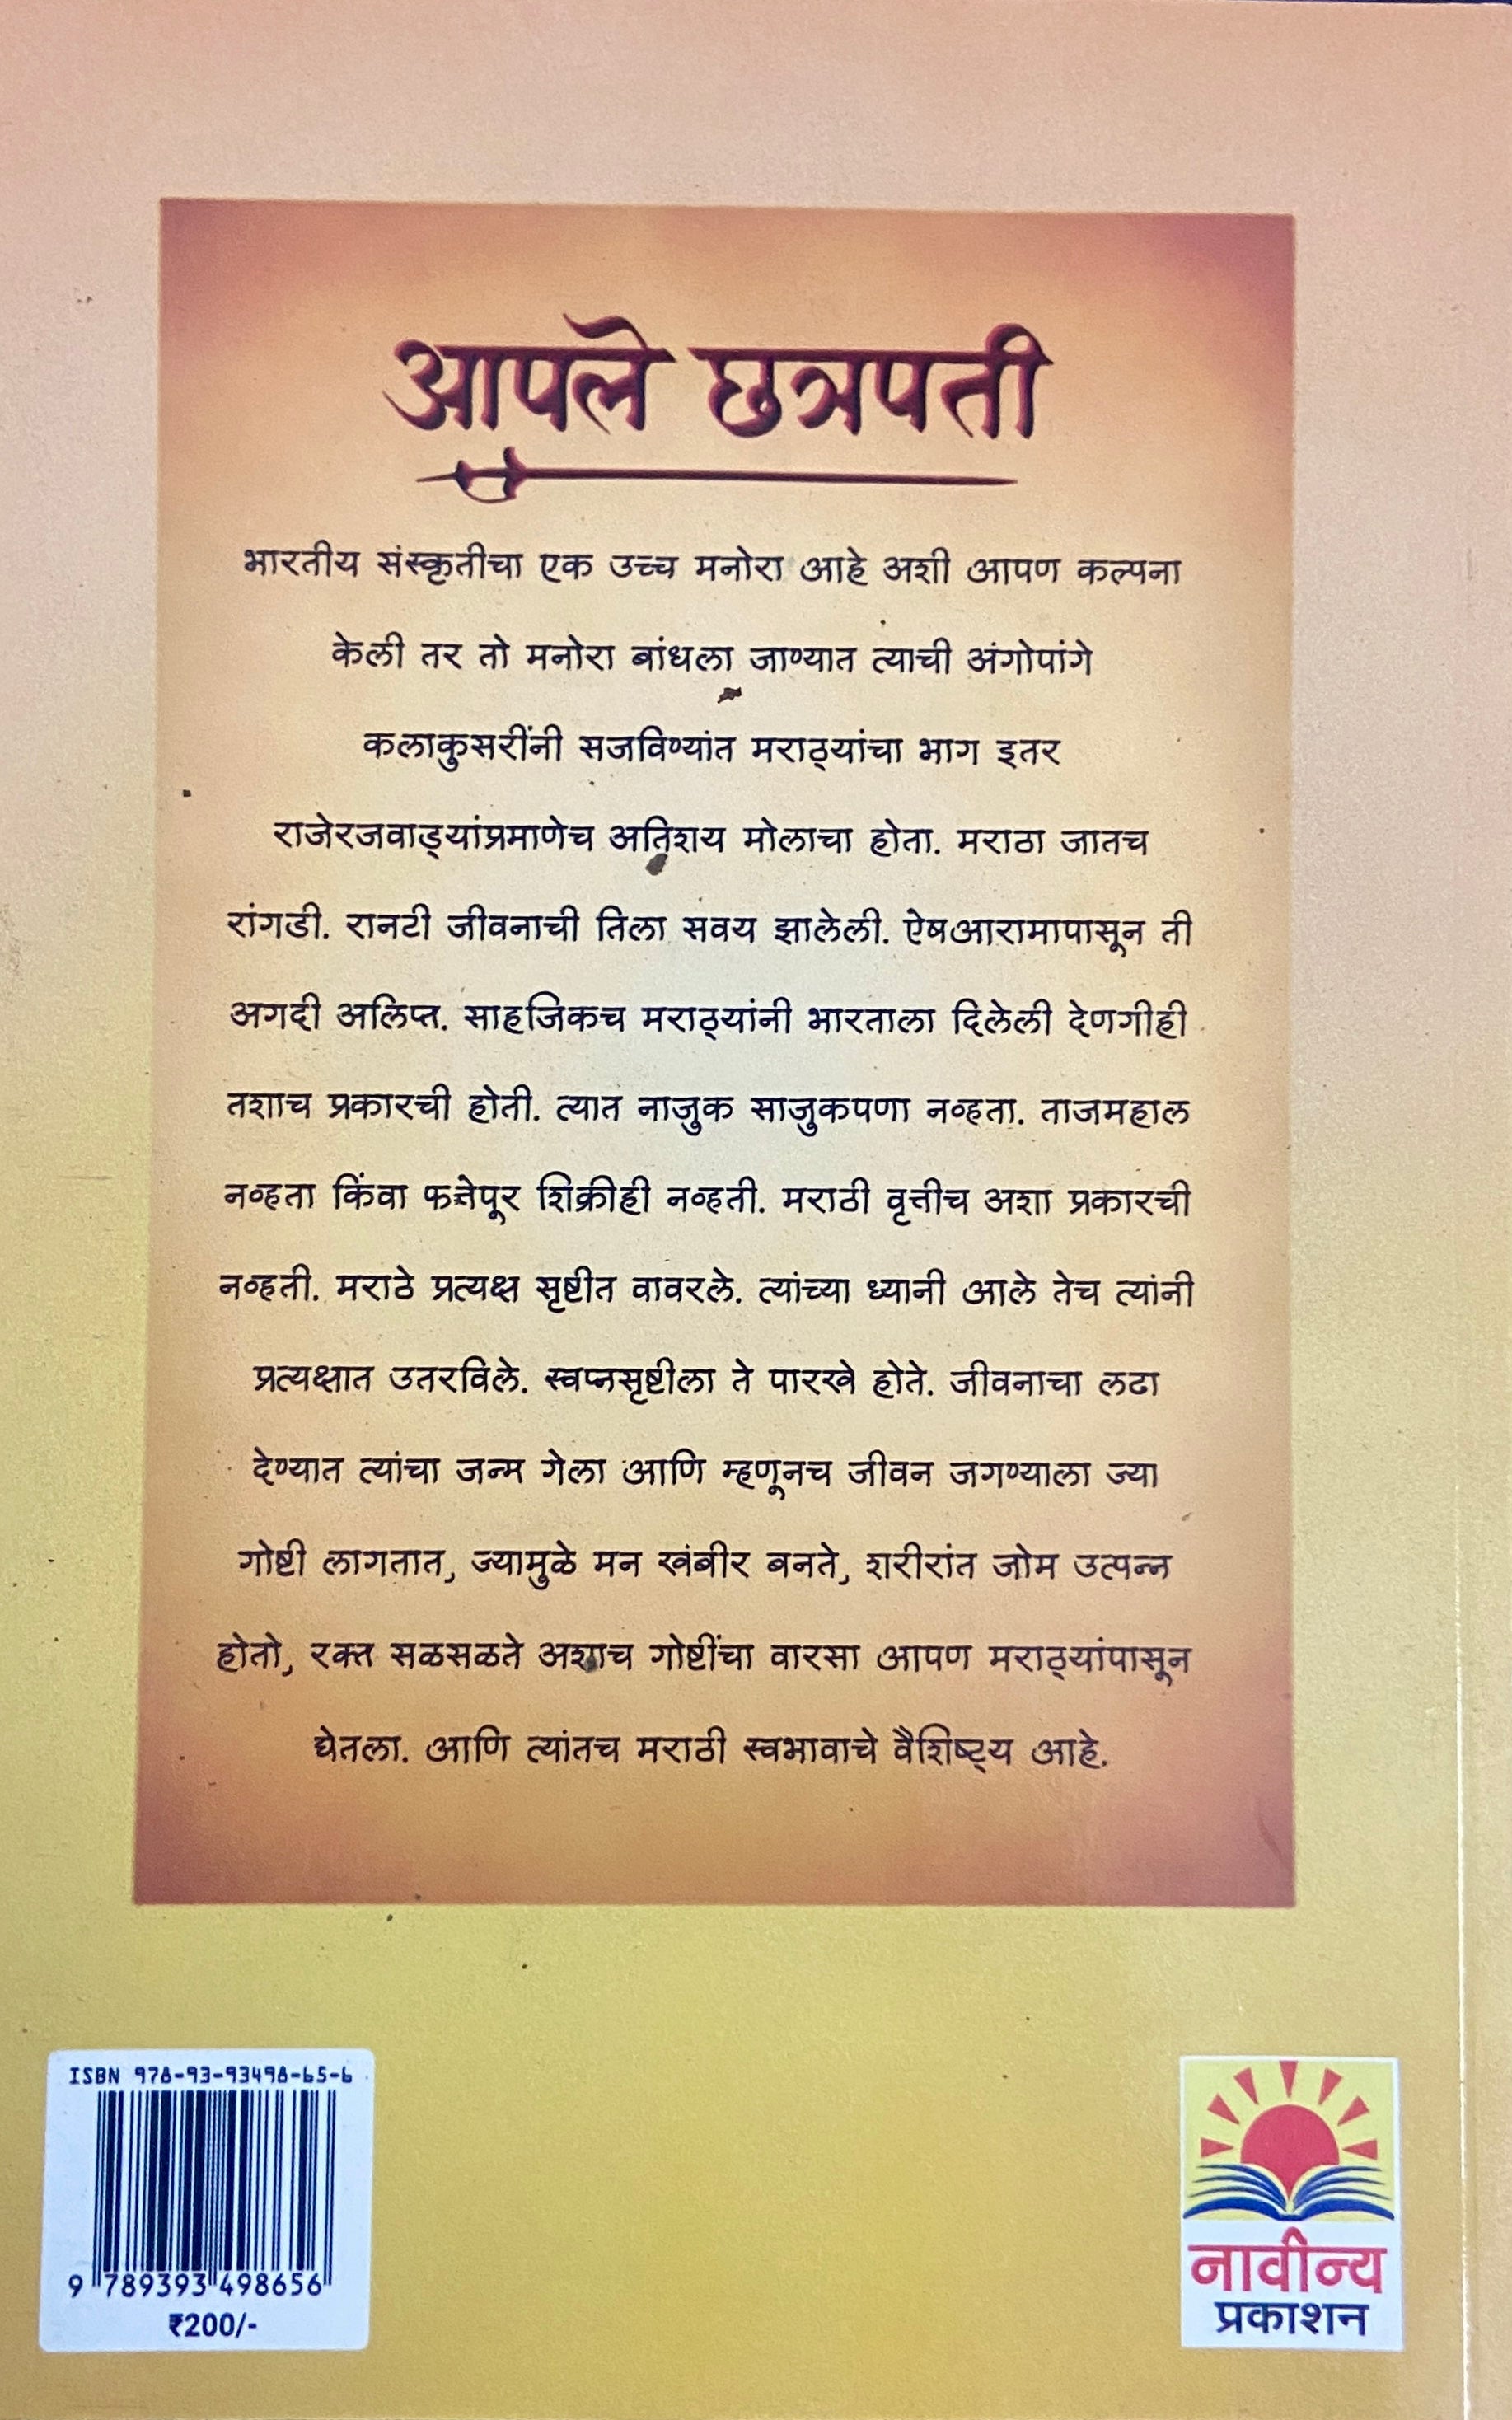 आपले छत्रपती
भारतीय संस्कृतीचा एक उच्च मनोरा आहे अशी आपण कल्पना
केली तर तो मनोरा बांधला जाण्यात त्याची अंगोपांगे
कलाकुसरींनी सजविण्यांत मराठ्यांचा भाग इतर
राजेरजवाड्यांप्रमाणेच अतिशय मोलाचा होता. मराठा जातच
रांगडी. रानटी जीवनाची तिला सवय झालेली. ऐषआरामापासून ती
अगदी अलिप्त. साहजिकच मराठ्यांनी भारताला दिलेली देणगीही
तशाच प्रकारची होती. त्यात नाजुक साजुकपणा नव्हता. ताजमहाल
नव्हता किंवा फत्तेपूर शिक्रीही नव्हती. मराठी वृत्तीच अशा प्रकारची
नव्हती. मराठे प्रत्यक्ष सृष्टीत वावरले. त्यांच्या ध्यानी आले तेच त्यांनी
प्रत्यक्षात उतरविले. स्वप्नसृष्टीला ते पारखे होते. जीवनाचा लढा
देण्यात त्यांचा जन्म गेला आणि म्हणूनच जीवन जगण्याला ज्या
गोष्टी लागतात, ज्यामुळे मन खंबीर बनते, शरीरांत जोम उत्पन्न
होतो, रक्त सळसळते अशाच गोष्टींचा वारसा आपण मराठ्यांपासून
घेतला. आणि त्यांतच मराठी स्वभावाचे वैशिष्ट्य आहे.
ISBN 978-93-93498-65-6
9 789393 498656
₹200/-
नावीन्य
प्रकाशन